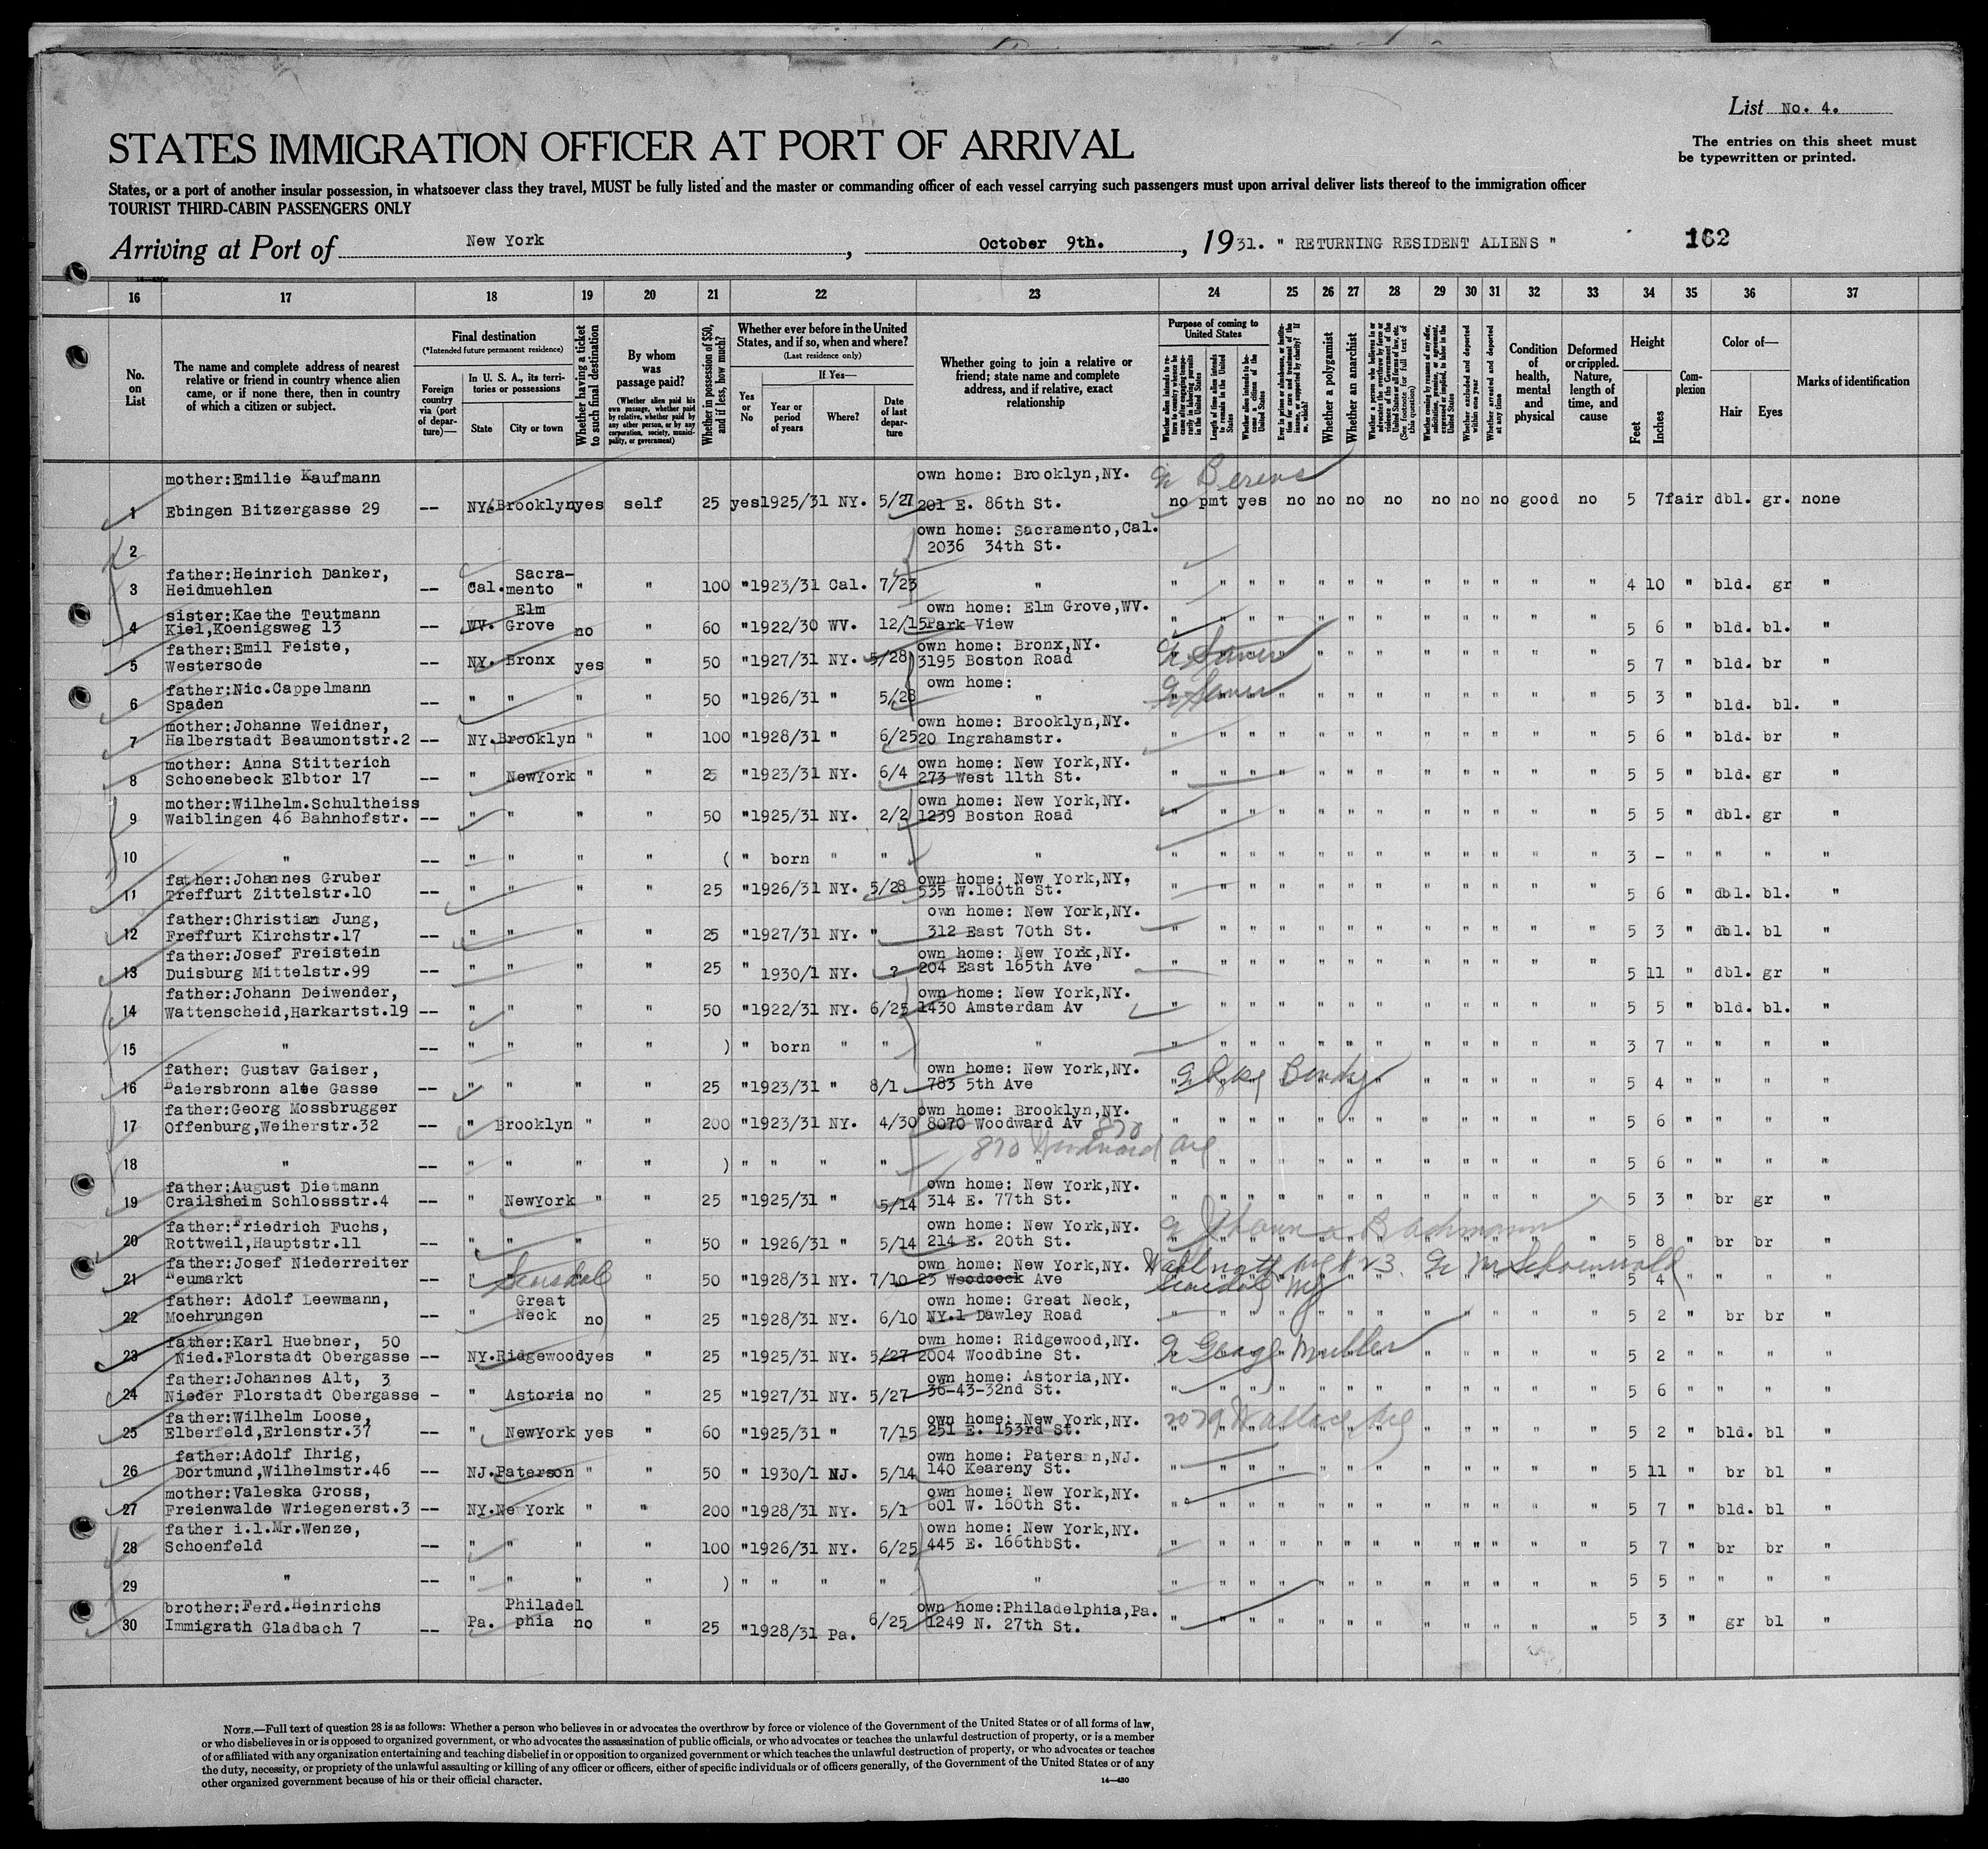 List No. 4.
STATES IMMIGRATION OFFICER AT PORT OF ARRIVAL
The entries on this sheet must
be typewritten or printed.
States, or a port of another insular possession, in whatsoever class they travel, MUST be fully listed and the master or commanding officer of each vessel carrying such passengers must upon arrival deliver lists thereof to the immigration officer
TOURIST THIRD-CABIN PASSENGERS ONLY
Arriving at Port of New York, October 9th., 1931. " RETURNING RESIDENT ALIENS " 162
16 17 18 19 20 21 22 23 24 25 26 27 28 29 30 31 32 33 34 35 36 37
No. on List
The name and complete address of nearest relative or friend in country whence alien came, or if none there, then in country of which a citizen or subject.
Final destination
(*Intended future permanent residence)
Foreign country via (port of departure)—
In U. S. A., its territories or possessions
State City or town
Whether having a ticket to such final destination
By whom was passage paid?
(Whether alien paid his own passage, whether paid by relative, whether paid by any other person, or by any corporation, society, municipality, or government)
Whether in possession of $50, and if less, how much?
Whether ever before in the United States, and if so, when and where?
(Last residence only)
If Yes—
Yes or No
Year or period of years
Where?
Date of last departure
Whether going to join a relative or friend; state name and complete address, and if relative, exact relationship
Purpose of coming to United States
Length of time alien intends to remain in the United States
Whether alien intends to become a citizen of the United States
Whether a polygamist
Whether an anarchist
Whether excluded and deported within one year
Whether arrested and deported at any time
Condition of health, mental and physical
Deformed or crippled. Nature, length of time, and cause
Height
Feet Inches
Complexion
Color of—
Hair Eyes
Marks of identification
mother:Emilie Kaufmann own home: Brooklyn,NY. Berens
1 Ebingen Bitzergasse 29 -- NY. Brooklyn yes self 25 yes 1925/31 NY. 5/27 201 E. 86th St. no pmt yes no no no no no no no good no 5 7 fair dbl. gr. none
own home: Sacramento,Cal.
2 2036 34th St.
father:Heinrich Danker, Sacra-
3 Heidmuehlen -- Cal. mento " " 100 "1923/31 Cal. 7/23 " " " " " " " " " " " " " 4 10 " bld. gr "
sister:Kaethe Teutmann Elm own home: Elm Grove,WV.
4 Kiel,Koenigsweg 13 -- WV. Grove no " 60 "1922/30 WV. 12/15 Park View " " " " " " " " " " " " 5 6 " bld. bl. "
father:Emil Feiste, own home: Bronx,NY.
5 Westersode -- NY. Bronx yes " 50 "1927/31 NY. 5/28 3195 Boston Road " " " " " " " " " " " " 5 7 " bld. br "
father:Nic.Cappelmann own home:
6 Spaden -- " " " " 50 "1926/31 " 5/28 " " " " " " " " " " " " " 5 3 " bld. bl. "
mother:Johanne Weidner, own home: Brooklyn,NY.
7 Halberstadt Beaumontstr.2 -- NY. Brooklyn " " 100 "1928/31 " 6/25 20 Ingrahamstr. " " " " " " " " " " " " 5 6 " bld. br "
mother: Anna Stitterich own home: New York,NY.
8 Schoenebeck Elbtor 17 -- " NewYork " " 25 "1923/31 NY. 6/4 273 West 11th St. " " " " " " " " " " " " 5 5 " bld. gr "
mother:Wilhelm.Schultheiss own home: New York,NY.
9 Waiblingen 46 Bahnhofstr. -- " " " " 50 "1925/31 NY. 2/2 1239 Boston Road " " " " " " " " " " " " 5 5 " dbl. gr "
10 " -- " " " " ( " born " " " " " " " " " " " " " " " 3 - " " " "
father:Johannes Gruber own home: New York,NY.
11 Treffurt Zittelstr.10 -- " " " " 25 "1926/31 NY. 5/28 535 W.160th St. " " " " " " " " " " " " 5 6 " dbl. bl. "
father:Christian Jung, own home: New York,NY.
12 Freffurt Kirchstr.17 -- " " " " 25 "1927/31 NY. " 312 East 70th St. " " " " " " " " " " " " 5 3 " dbl. bl "
father:Josef Freistein own home: New York,NY.
13 Duisburg Mittelstr.99 -- " " " " 25 " 1930/1 NY. ? 204 East 165th Ave " " " " " " " " " " " " 5 11 " dbl. gr "
father:Johann Deiwender, own home: New York,NY.
14 Wattenscheid,Harkartst.19 -- " " " " 50 "1922/31 NY. 6/25 1430 Amsterdam Av " " " " " " " " " " " " 5 5 " bld. bl. "
15 " -- " " " " ) " born " " " " " " " " " " " " " " " 3 7 " " " "
father: Gustav Gaiser, own home: New York,NY.
16 Baiersbronn alte Gasse -- " " " " 25 "1923/31 " 8/1 783 5th Ave " " " " " " " " " " " " 5 4 " " " "
father:Georg Mossbrugger own home: Brooklyn,NY.
17 Offenburg,Weiherstr.32 -- " Brooklyn " " 200 "1923/31 NY. 4/30 8070 Woodward Av 870 " " " " " " " " " " " " 5 6 " " " "
870 Woodward Ave
18 " -- " " " " ) " " " " " " " " " " " " " " " " " 5 6 " " " "
father:August Dietmann own home: New York,NY.
19 Crailsheim Schlossstr.4 -- " NewYork " " 25 "1925/31 " 5/14 314 E. 77th St. " " " " " " " " " " " " 5 3 " br gr "
father:Friedrich Fuchs, own home: New York,NY. Bachmann
20 Rottweil,Hauptstr.11 -- " " " " 50 " 1926/31 " 5/14 214 E. 20th St. " " " " " " " " " " " " 5 8 " br br "
father:Josef Niederreiter own home: New York,NY.
21 Neumarkt -- " Scarsdale " 50 "1928/31 NY. 7/10 23 Woodcock Ave Scarsdale NY " " " " " " " " " 5 4 " " " "
father: Adolf Leewmann, Great own home: Great Neck,
22 Moehrungen " Neck no " 25 "1928/31 NY. 6/10 NY.1 Dawley Road " " " " " " " " " " " " 5 2 " br br "
father:Karl Huebner, 50 own home: Ridgewood,NY. George Muller
23 Nied.Florstadt Obergasse -- NY. Ridgewood yes " 25 "1925/31 NY. 5/27 2004 Woodbine St. " " " " " " " " " " " " 5 2 " " " "
father:Johannes Alt, 3 own home: Astoria,NY.
24 Nieder Florstadt Obergasse - " Astoria no " 25 "1927/31 NY. 5/27 36-43-32nd St. " " " " " " " " " " " " 5 6 " " " "
father:Wilhelm Loose, own home: New York,NY. 2079 Wallace Ave
25 Elberfeld,Erlenstr.37 -- " NewYork yes " 60 "1925/31 " 7/15 251 E. 153rd St. " " " " " " " " " " " " 5 2 " bld. bl "
father:Adolf Ihrig, own home: Paters n,NJ.
26 Dortmund,Wilhelmstr.46 -- NJ. Paterson " " 50 " 1930/1 NJ. 5/14 140 Keareny St. " " " " " " " " " " " " 5 11 " br bl "
mother:Valeska Gross, own home: New York,NY.
27 Freienwalde Wriegenerst.3 -- NY. New York " " 200 "1928/31 NY. 5/1 601 W. 160th St. " " " " " " " " " " " " 5 7 " bld. bl "
father i.l.Mr.Wenze, own home: New York,NY.
28 Schoenfeld -- " " " " 100 "1926/31 NY. 6/25 445 E. 166thbSt. " " " " " " " " " " " " 5 7 " br br "
29 " -- " " " " ) " " " " " " " " " " " " " " " " " 5 5 " " " "
brother:Ferd.Heinrichs Philadel own home:Philadelphia,Pa.
30 Immigrath Gladbach 7 -- Pa. phia no " 25 "1928/31 Pa. 6/25 1249 N. 27th St. " " " " " " " " " " " " 5 3 " gr bl "
NOTE.—Full text of question 28 is as follows: Whether a person who believes in or advocates the overthrow by force or violence of the Government of the United States or of all forms of law,
or who disbelieves in or is opposed to organized government, or who advocates the assassination of public officials, or who advocates or teaches the unlawful destruction of property, or is a member
of or affiliated with any organization entertaining and teaching disbelief in or opposition to organized government or which teaches the unlawful destruction of property, or who advocates or teaches
the duty, necessity, or propriety of the unlawful assaulting or killing of any officer or officers, either of specific individuals or of officers generally, of the Government of the United States or of any
other organized government because of his or their official character.
14—430